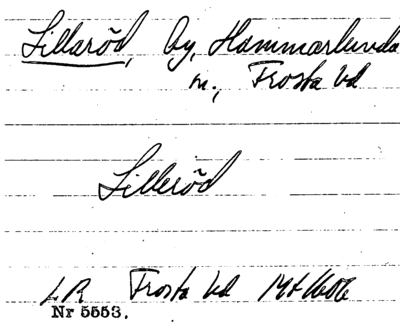 Lillaröd, By, Hammarlunda
sn., Frosta hd
Lilleröd
LR Frosta hd
Nr 5553.